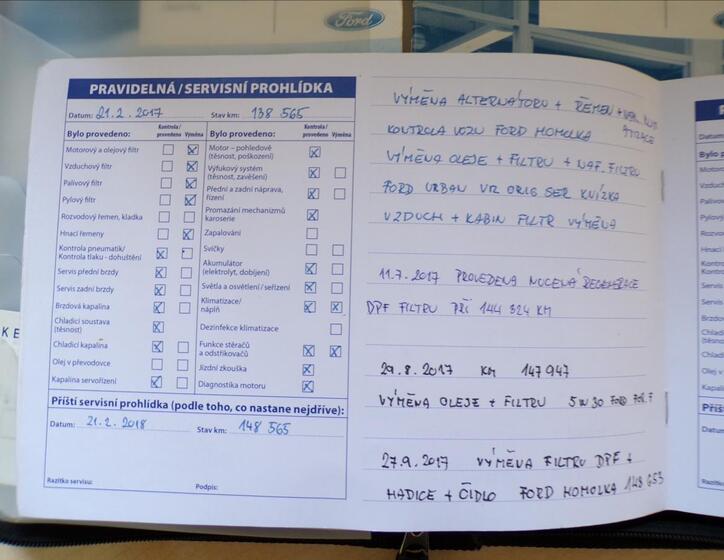 Ford
PRAVIDELNÁ / SERVISNÍ PROHLÍDKA
Datum: 21.2.2017 Stav km: 138 565
Bylo provedeno: Kontrola / provedeno Výměna
Motorový a olejový filtr
Vzduchový filtr
Palivový filtr
Pylový filtr
Rozvodový řemen, kladka
Hnací řemeny
Kontrola pneumatik/
Kontrola tlaku - dohuštění
Servis přední brzdy
Servis zadní brzdy
Brzdová kapalina
Chladicí soustava
(těsnost)
Chladicí kapalina
Olej v převodovce
Kapalina servořízení
Bylo provedeno: Kontrola / provedeno Výměna
Motor – pohledově
(těsnost, poškození)
Výfukový systém
(těsnost, zavěšení)
Přední a zadní náprava,
řízení
Promazání mechanizmů
karoserie
Zapalování
Svíčky
Akumulátor
(elektrolyt, dobíjení)
Světla a osvětlení / seřízení
Klimatizace/
náplň
Dezinfekce klimatizace
Funkce stěračů
a odstřikovačů
Jízdní zkouška
Diagnostika motoru
Příští servisní prohlídka (podle toho, co nastane nejdříve):
Datum: 21.2.2018 Stav km: 148 565
Razítko servisu: Podpis:
VÝMĚNA ALTERNÁTORU + ŘEMEN
KONTROLA VOZU FORD HOMOLKA
VÝMĚNA OLEJE + FILTRU + NAF. FILTRU
FORD URBAN VIZ ORIG SER KNÍŽKA
VZDUCH + KABIN FILTR VÝMĚNA
11.7.2017 PROVEDENA NUCENÁ REGENERACE
DPF FILTRU PŘI 144 324 KM
29.8.2017 KM 147 947
VÝMĚNA OLEJE + FILTRU 5W30 FORD
27.9.2017 VÝMĚNA FILTRU DPF +
HADICE + ČIDLO FORD HOMOLKA 148 653